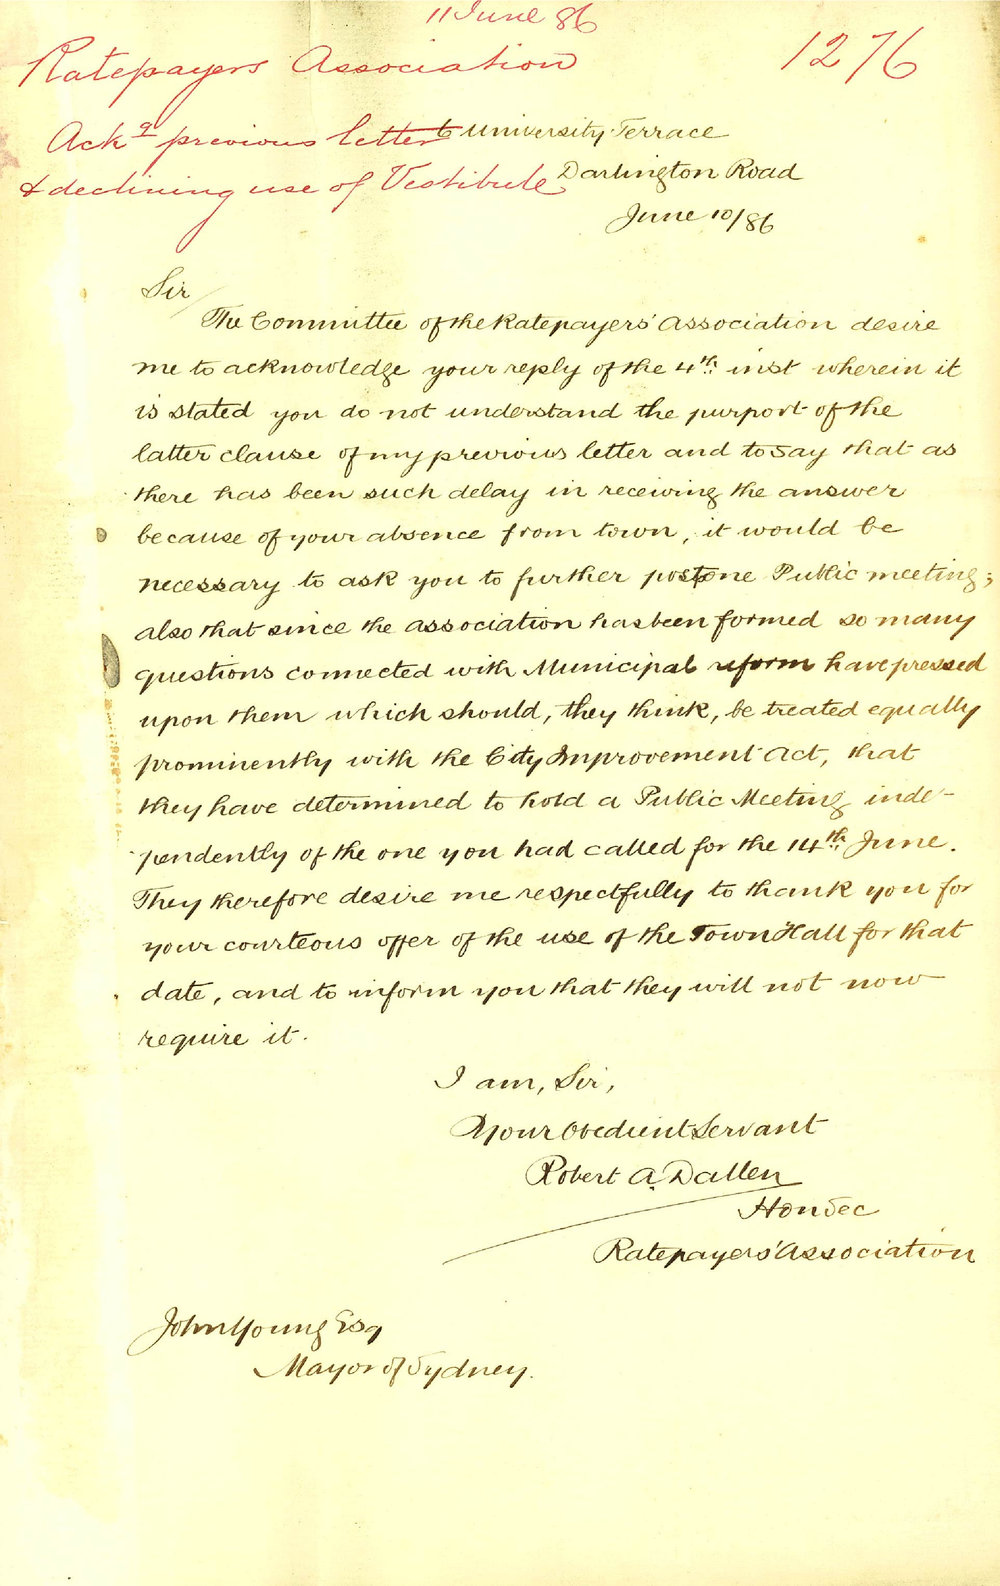 11 June 86
Ratepayers Association
1276
Ackg previous letter
& declining use of Vestibule
6 University Terrace
Darlington Road
June 10/86
Sir
The Committee of the Ratepayers' Association desire
me to acknowledge your reply of the 4th inst wherein it
is stated you do not understand the purport of the
latter clause of my previous letter and to say that as
there has been such delay in receiving the answer
because of your absence from town, it would be
necessary to ask you to further postpone Public meeting;
also that since the association has been formed so many
questions connected with Municipal reform have pressed
upon them which should, they think, be treated equally
prominently with the City Improvement Act, that
they have determined to hold a Public Meeting inde-
pendently of the one you had called for the 14th June.
They therefore desire me respectfully to thank you for
your courteous offer of the use of the Town Hall for that
date, and to inform you that they will not now
require it.
I am, Sir,
Your Obedient Servant
Robert A. Dallen
Hon Sec
Ratepayers' Association
John Young Esq
Mayor of Sydney.